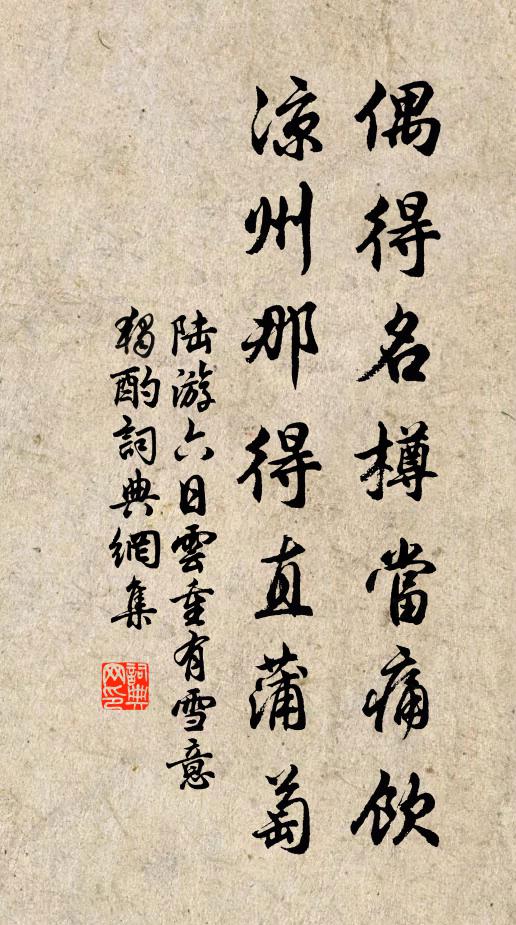 偶得名樽當痛飲
凉州那得直蒲萄
陆游六日雲重有雪意
獨酌詞典網集
詞典
网印